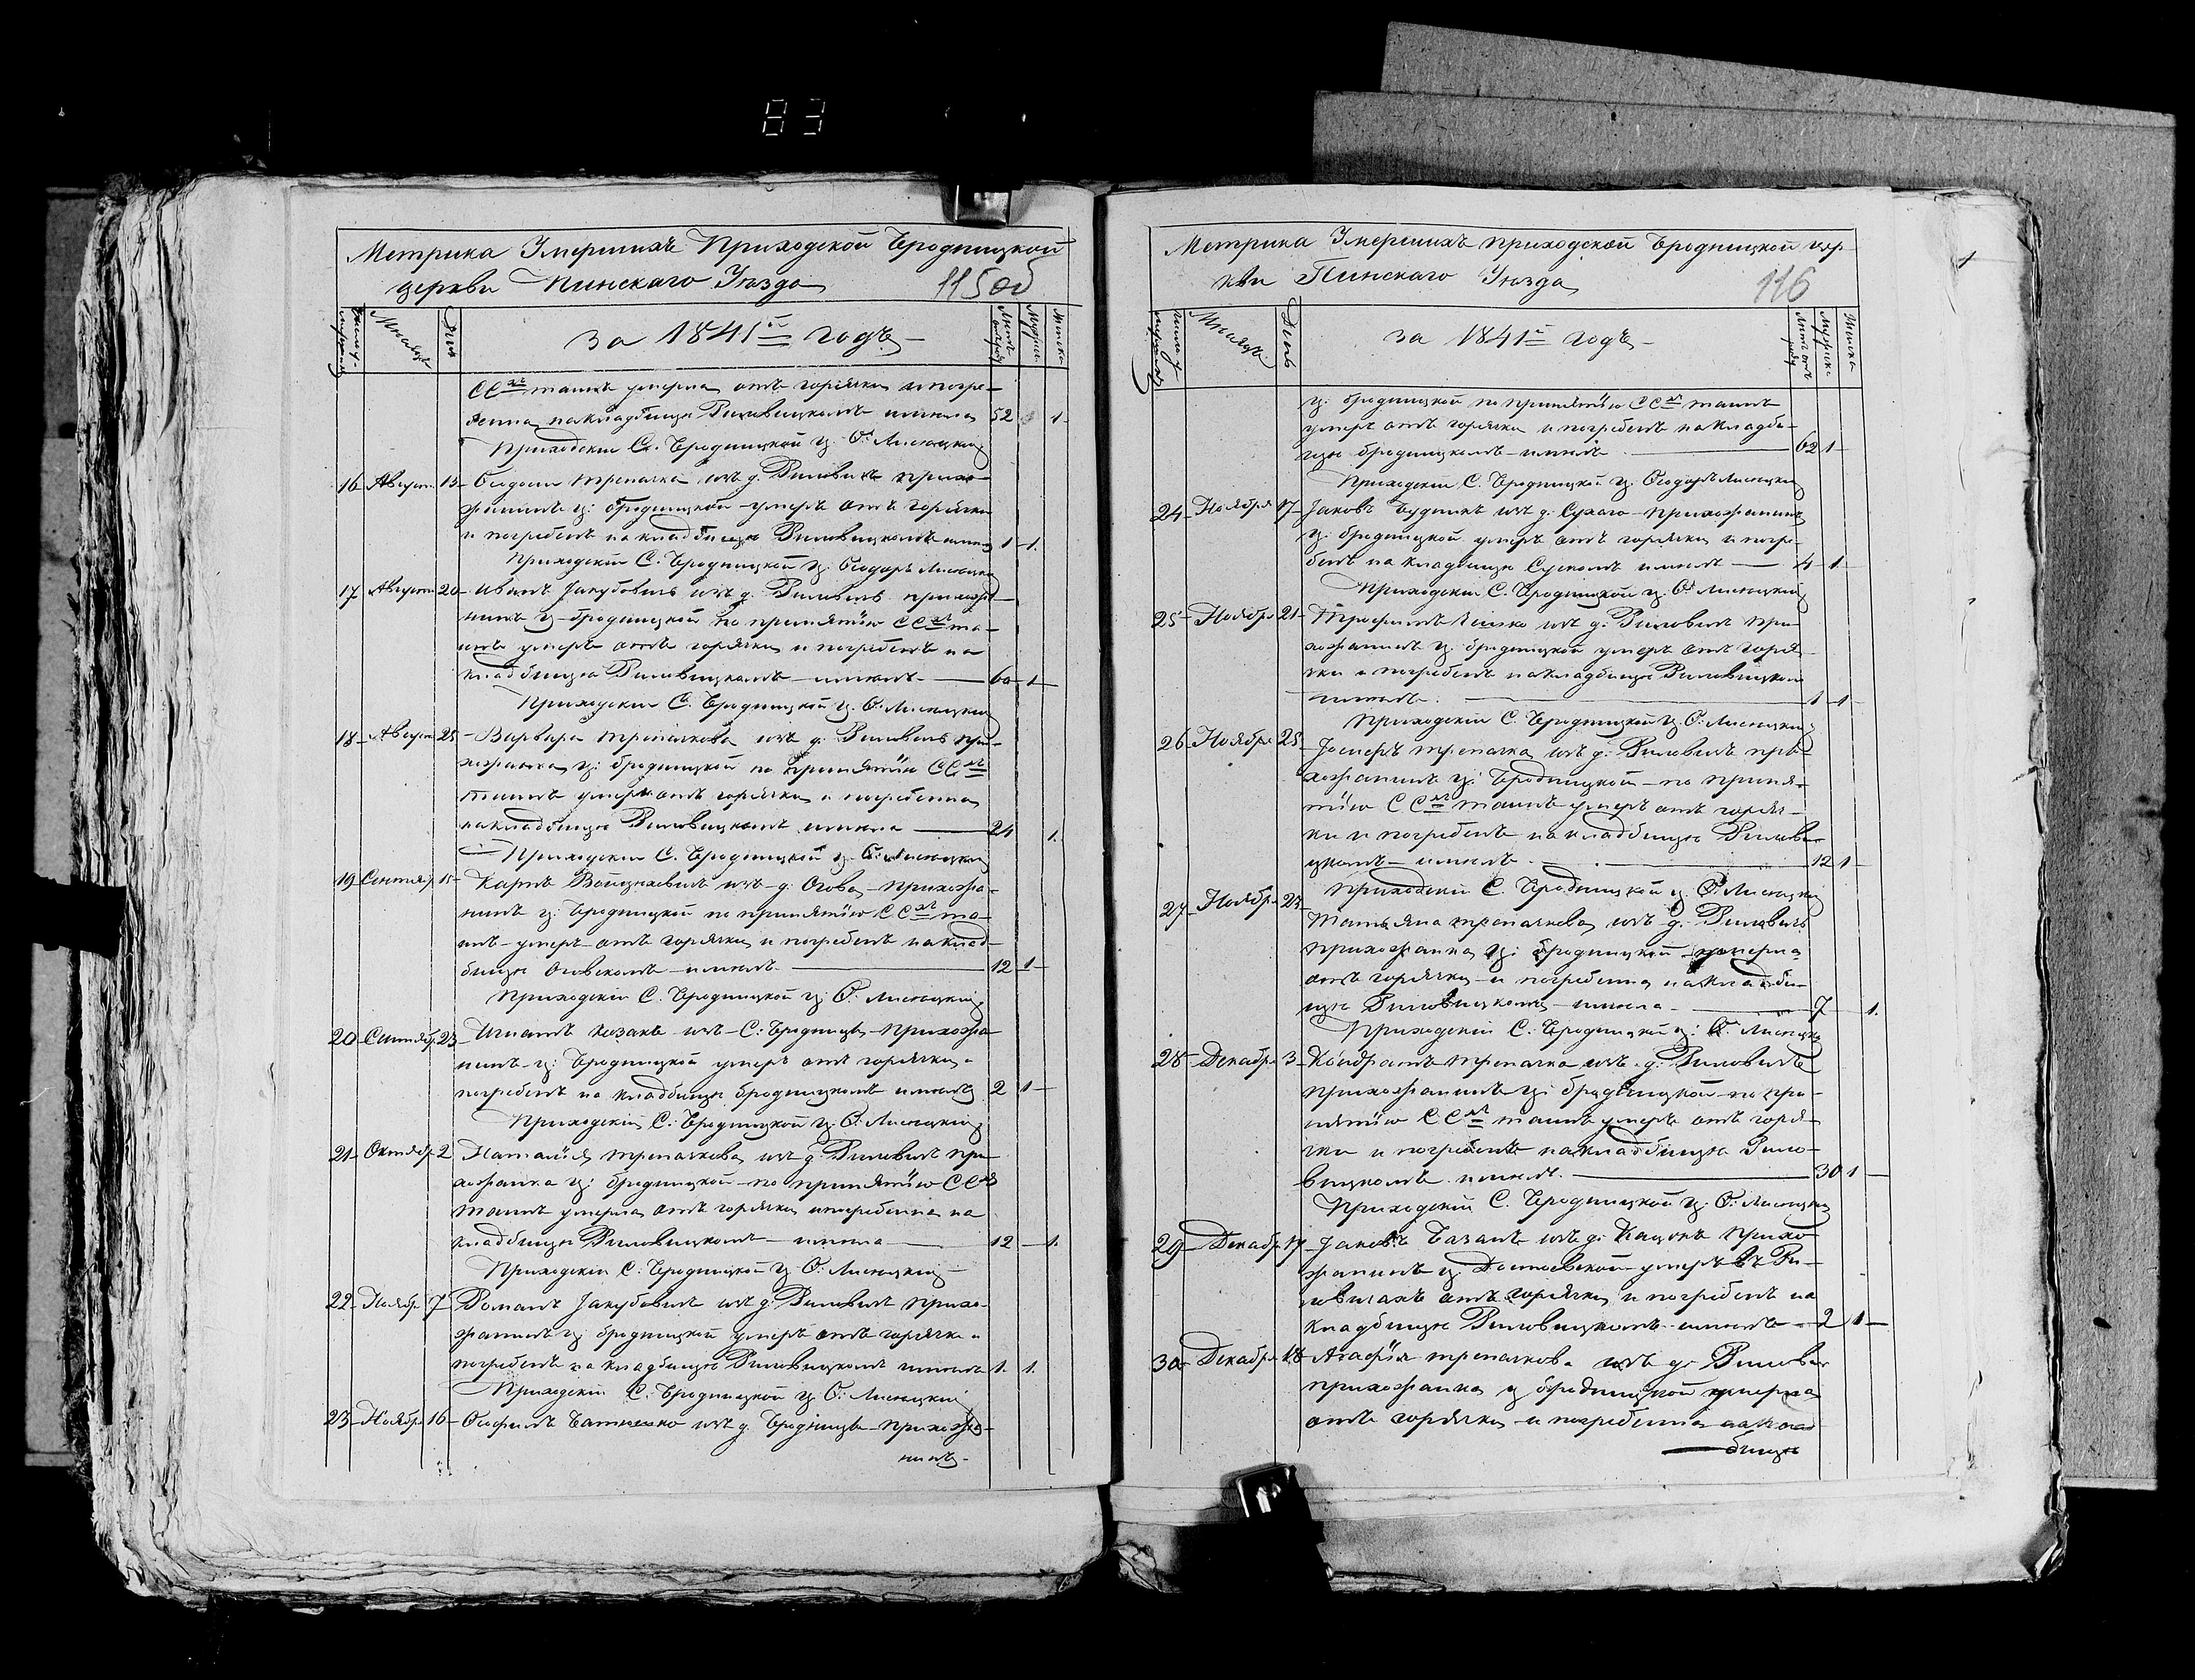 83
Метрика Умершихъ Приходской Бродницкой
церкви Пинскаго Уѣзда
115 об
Мѣсяцъ
День
за 1841й годъ
ССхъ таинъ умерла отъ горячки и погре-
бенна на кладбищѣ Риловицкомъ имѣла 52 1
Приходскій С. Бродницкой ц. Ѳ. Лисецкій
16 Август. 15 Ѳеодосій Трепачка изъ д. Риловичъ прихо-
жанинъ ц: бродницкой умеръ отъ горячки
и погребенъ на кладбищѣ Риловицкомъ 1 1
Приходскій С. Бродницкой ц. Ѳеодоръ Лисецкій
17 Август. 20 Иванъ Якубовичъ изъ д. Риловичъ прихожа-
нинъ ц. бродницкой по принятію ССхъ та-
инъ умеръ отъ горячки и погребенъ на
кладбищѣ Риловицкомъ имѣлъ 60 1
Приходскій С. Бродницкой ц. Ѳ. Лисецкій
18 Август. 25 Варвара Трепачкова изъ д. Риловичъ при-
хожанка ц: бродницкой по принятію ССхъ
таинъ умерла отъ горячки и погребенна
на кладбищѣ Риловицкомъ имѣла 21 1.
Приходскій С. Бродницкой ц. Ѳ. Лисецкій
19 Сентябр. 15 Карпъ изъ д. Огова прихожа-
нинъ ц: Бродницкой по принятію ССхъ та-
инъ умеръ отъ горячки и погребенъ на клад-
бищѣ Оговскомъ имѣлъ 12 1
Приходскій С. Бродницкой ц. Ѳ. Лисецкій
20 Сентябр. 23 Игнатъ Козакъ изъ С: Бродницы прихожа-
нинъ ц: Бродницкой умеръ отъ горячки и
погребенъ на кладбищѣ бродницкомъ имѣлъ 2 1
Приходскій С. Бродницкой ц. Ѳ. Лисецкій
21 Октябр. 2 Наталія Трепачкова изъ д. Риловичъ при-
хожанка ц: бродницкой по принятію ССхъ
таинъ умерла отъ горячки и погребенна на
кладбищѣ Риловицкомъ имѣла 12 1.
Приходскій С. Бродницкой ц. Ѳ. Лисецкій
22 Ноябр. 7 Романъ Якубовичъ изъ д. Риловичъ прихо-
жанинъ ц: бродницкой умеръ отъ горячки и
погребенъ на кладбищѣ Риловицкомъ имѣлъ 1. 1.
Приходскій С. Бродницкой ц. Ѳ. Лисецкій
23 Ноябр. 16 Ѳеофилъ изъ д. Бродницы прихожа-
нинъ
Метрика Умершихъ приходской Бродницкой цер-
кви Пинскаго Уѣзда
116
Мѣсяцъ
День
за 1841й годъ
ц. бродницкой по принятію ССхъ таинъ
умеръ отъ горячки и погребенъ на кладби-
щѣ бродницкомъ имѣлъ 62 1
Приходскій С. Бродницкой ц. Ѳеодоръ Лисецкій
24 Ноября 17 Яковъ Будникъ изъ д. Сухаго прихожанинъ
ц. бродницкой умеръ отъ горячки и погре-
бенъ на кладбищѣ Сускомъ имѣлъ 4 1
Приходскій С. Бродницкой ц. Ѳ. Лисецкій
25 Ноябр. 21 Трофимъ изъ д. Риловичъ при-
хожанинъ ц. бродницкой умеръ отъ горя-
чки и погребенъ на кладбищѣ Риловицком
имѣлъ. 1 1
Приходскій С. Бродницкой ц. Ѳ. Лисецкій
26 Ноябр. 25 Трепачка изъ д. Риловичъ при-
хожанинъ ц: Бродницкой по приня-
тію ССхъ таинъ умеръ отъ горяч-
ки и погребенъ на кладбищѣ Рилови-
цкомъ имѣлъ 12 1
Приходскій С. Бродницкой ц. Ѳ. Лисецкій
27 Ноябр. Татьяна Трепачкова изъ д. Риловичъ
прихожанка ц: бродницкой умерла
отъ горячки и погребенна на кладби-
щѣ Риловицкомъ имѣла 7 1.
Приходскій С. Бродницкой ц: Ѳ. Лисецкій
28 Декабр. 3 Кондратъ Трепачка изъ д. Риловичъ
прихожанинъ ц: бродницкой по при-
нятію ССхъ таинъ умеръ отъ горя-
чки и погребенъ на кладбищѣ Рило-
вицкомъ имѣлъ. 30 1
Приходскій С. Бродницкой ц. Ѳ. Лисецкій
29 Декабр. 17 Яковъ изъ д. прихо-
жанинъ ц. умеръ въ Ри-
ловичахъ отъ горячки и погребенъ на
кладбищѣ Риловицкомъ имѣлъ 2 1
30 Декабр. 18 Агафія Трепачкова изъ д. Рилович
прихожанка ц бродницкой умерла
отъ горячки и погребенна на клад
бищѣ